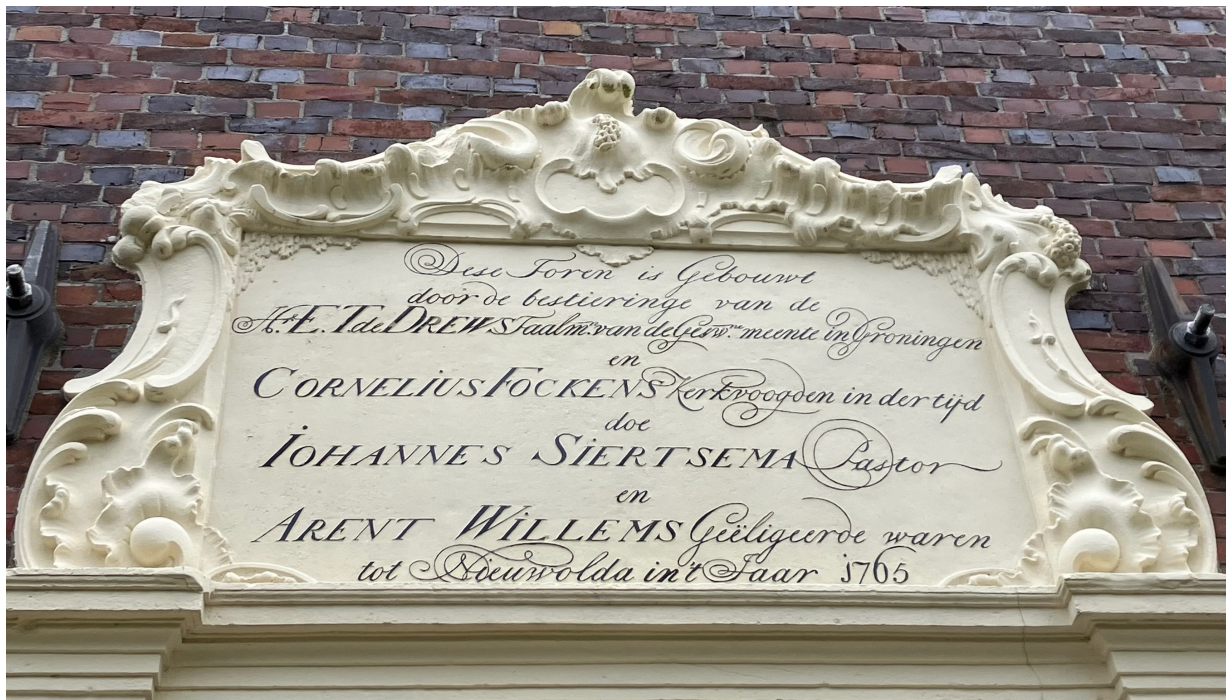 Dese Toren is Gebouwt
door de bestieringe van de
Hr. E. T. de DREWS Taalm: van de Gesw:ne meente in Groningen
en
CORNELIUS FOCKENS Kerkvoogden in der tijd
doe
IOHANNES SIERTSEMA Pastor
en
ARENT WILLEMS Geëligeerde waren
tot Nieuwolda in't Jaar 1765